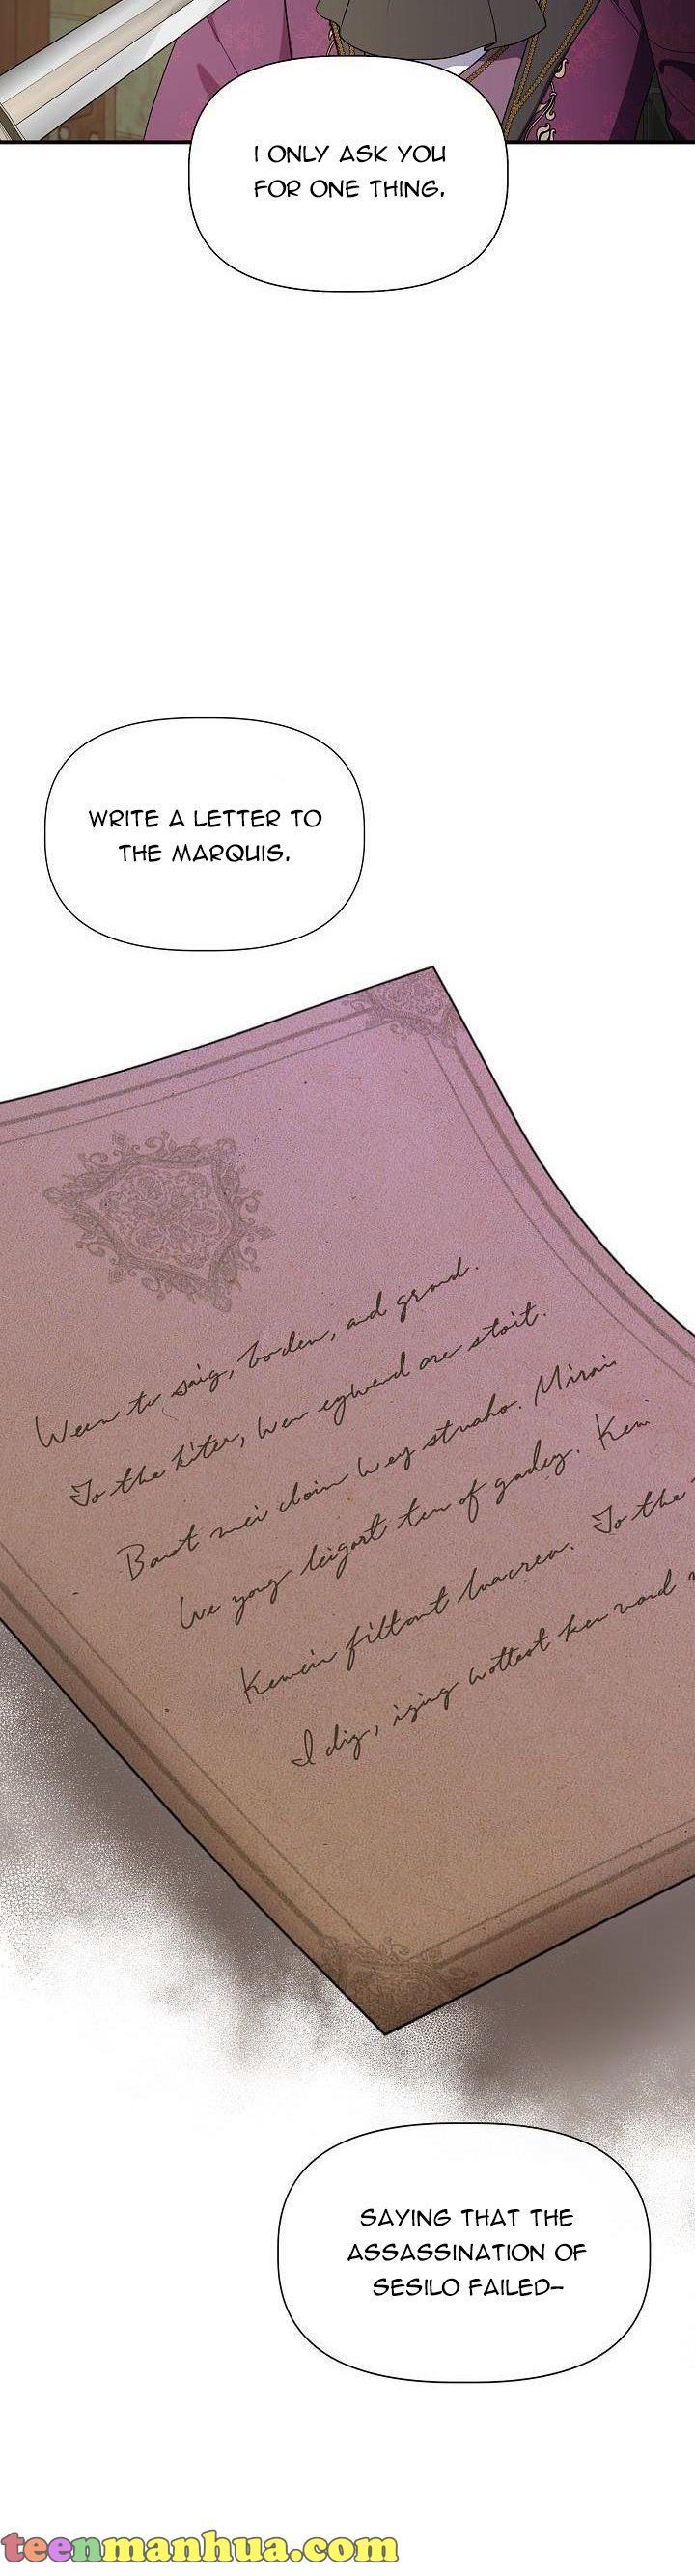 I ONLY ASK YOU
FOR ONE THING.
WRITE A LETTER TO
THE MARQUIS.
Ween to saig, boden, and grond.
To the kiter, wen egwend are stoit.
Banot mei doin wey struaho. Mirai
We yong leigart ten of gadey. Ken
Kewein filtont luacrea. To the
I dig, izing wottest ken vond
SAYING THAT THE
ASSASSINATION OF
SESILO FAILED-
teenmanhua.com